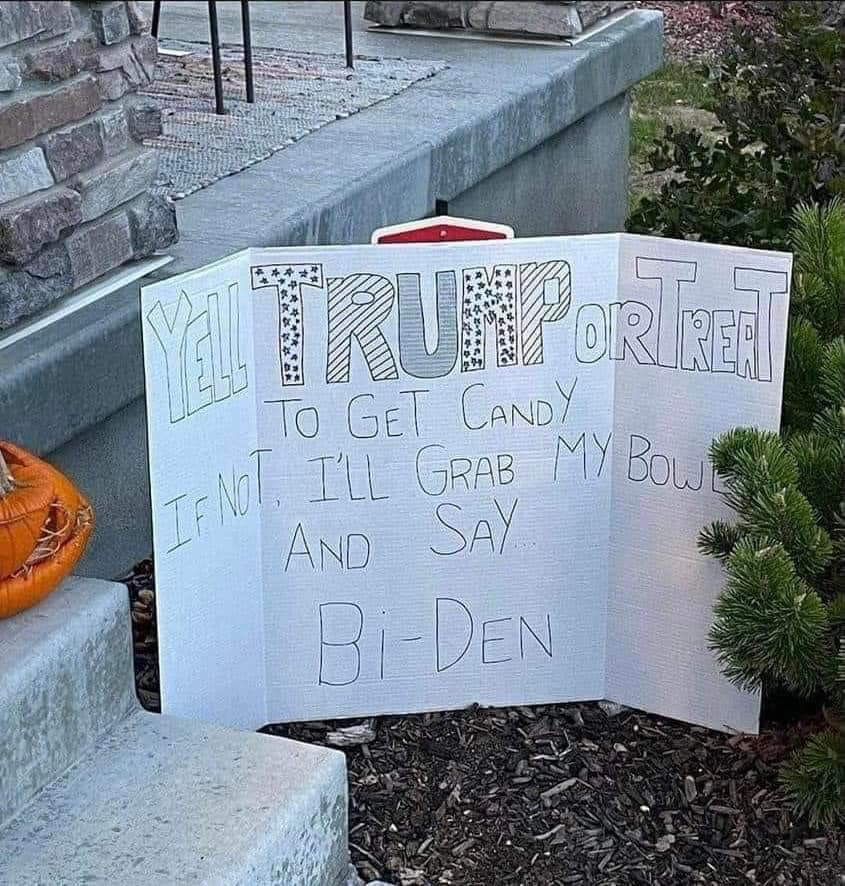 YELL TRUMP OR TREAT
TO GET CANDY
IF NOT, I'LL GRAB MY BOWL
AND SAY...
Bi-DEN